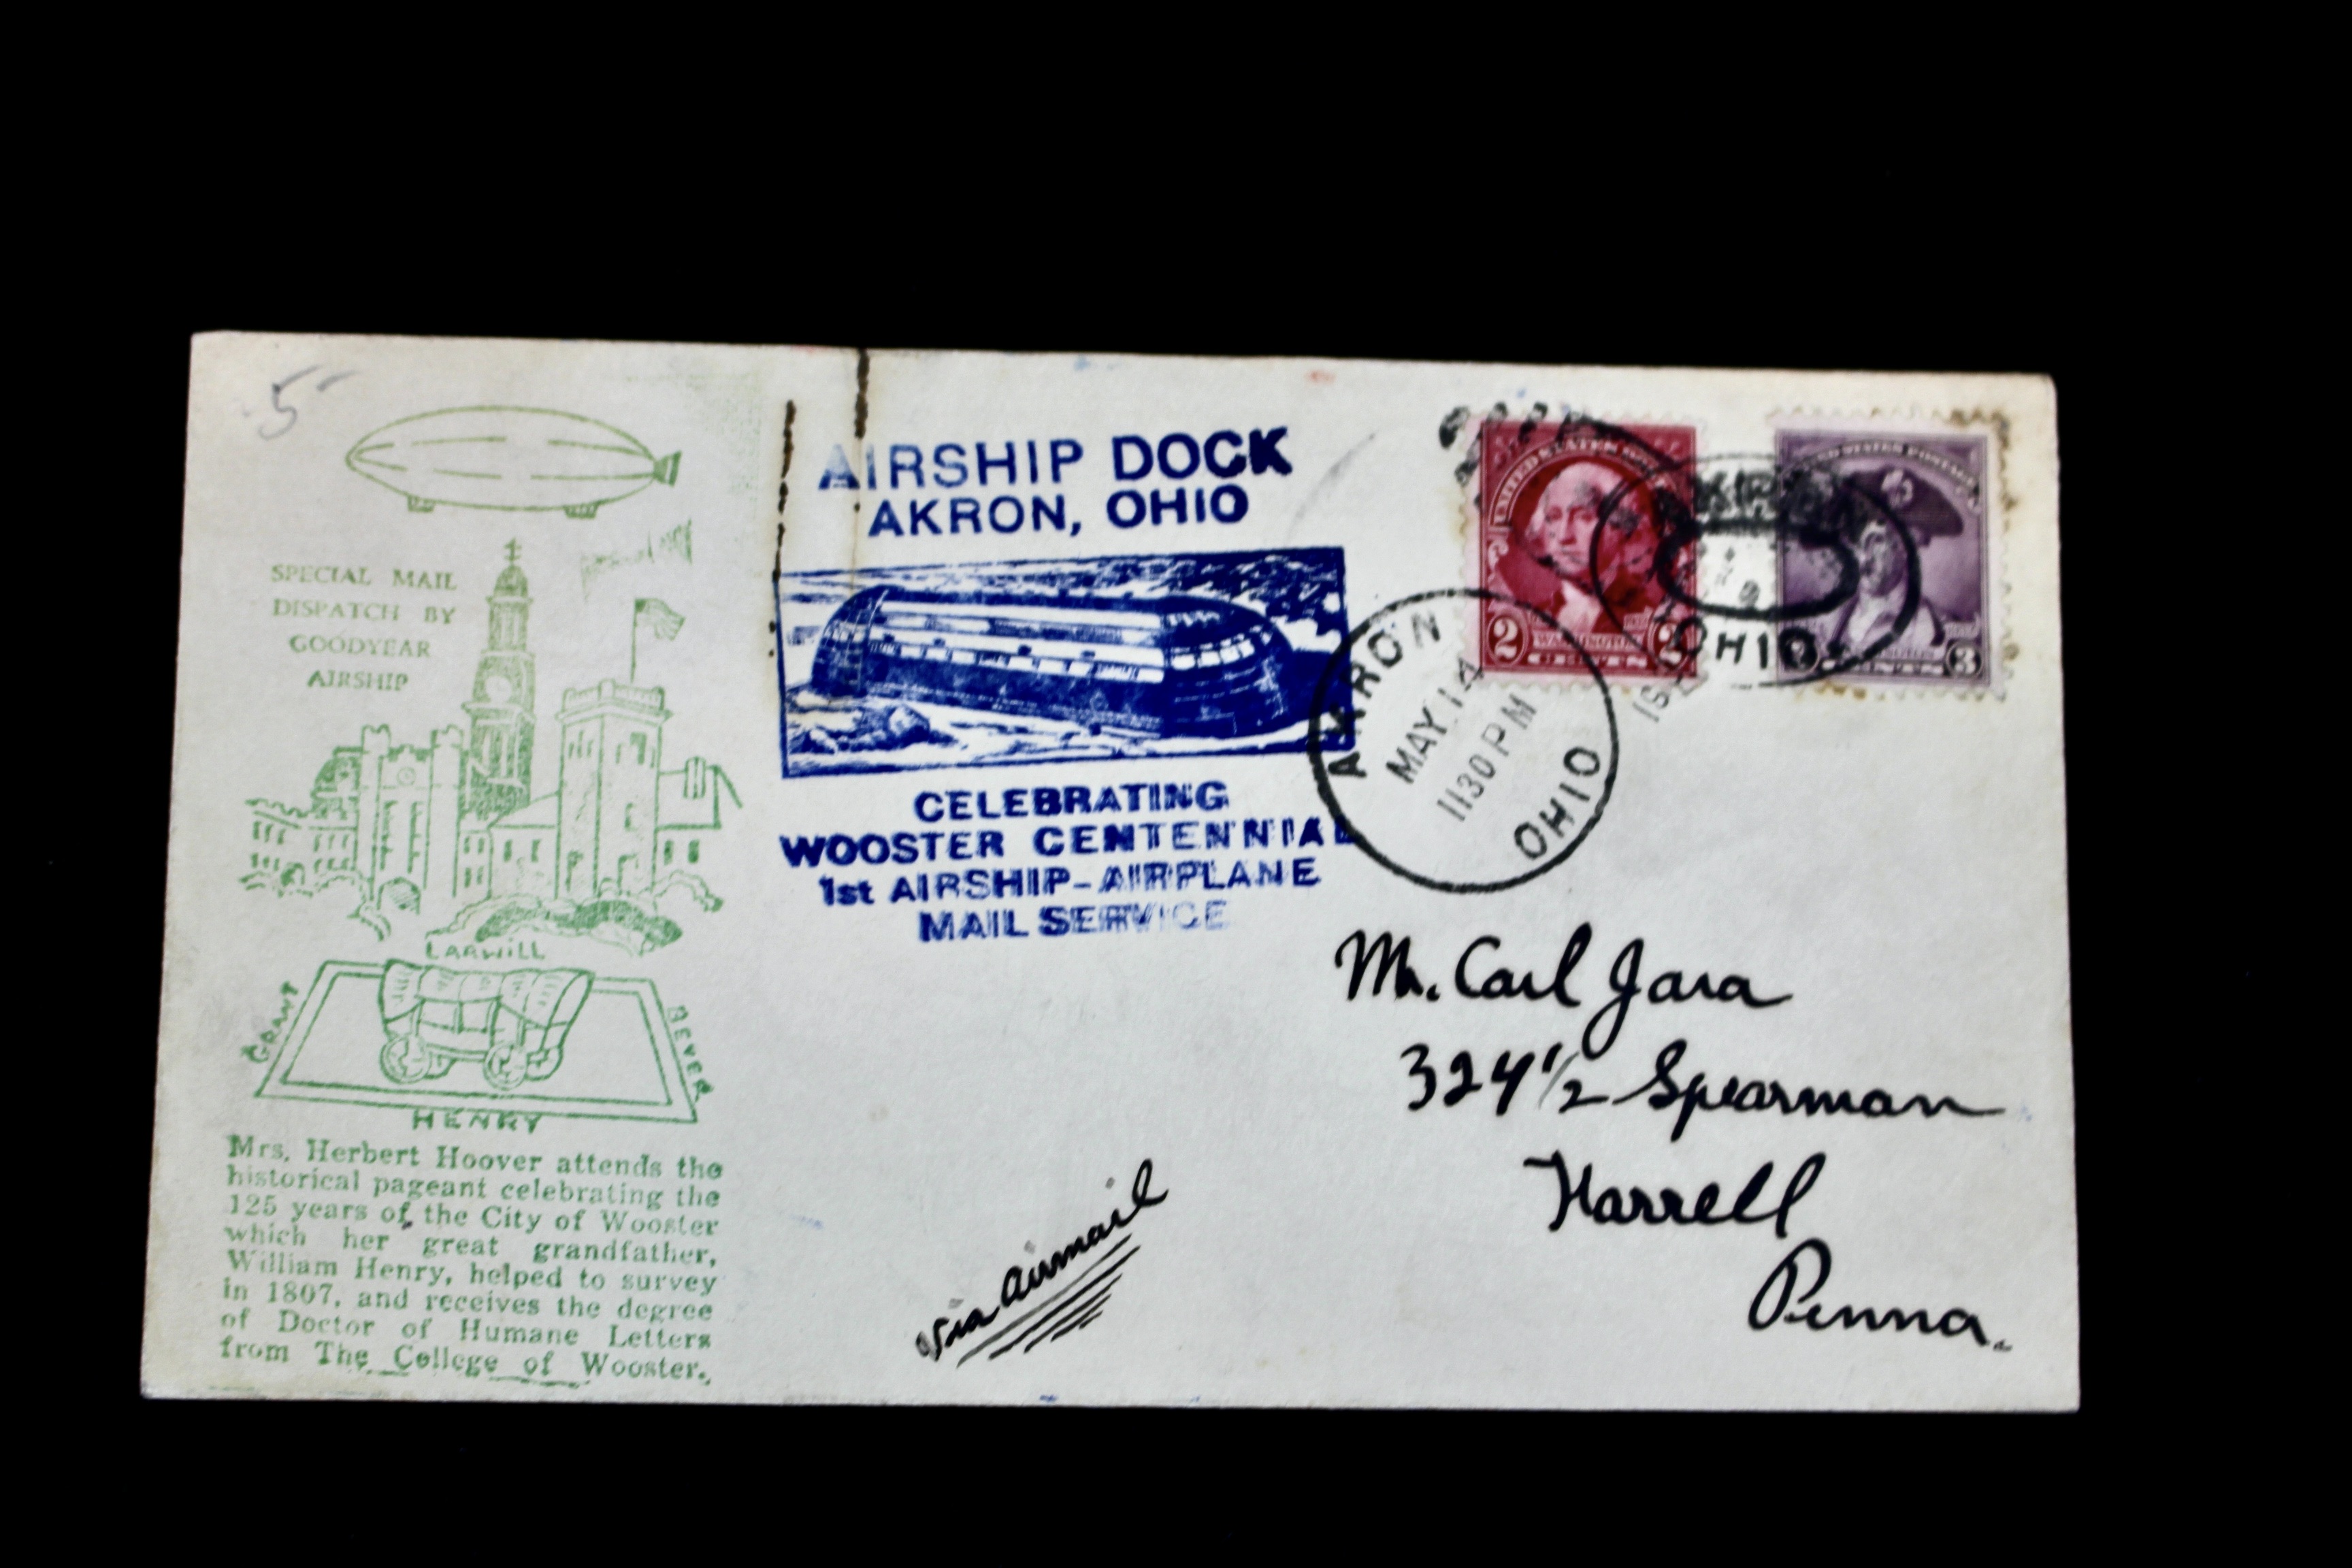 5-
SPECIAL MAIL
DISPATCH BY
GOODYEAR
AIRSHIP
LARWILL
GRANT
BEVER
HENRY
Mrs. Herbert Hoover attends the
historical pageant celebrating the
125 years of the City of Wooster
which her great grandfather,
William Henry, helped to survey
in 1807, and receives the degree
of Doctor of Humane Letters
from The College of Wooster.
AIRSHIP DOCK
AKRON, OHIO
CELEBRATING
WOOSTER CENTENNIAL
1st AIRSHIP-AIRPLANE
MAIL SERVICE
AKRON
MAY 14
1130 PM
OHIO
UNITED STATES
2 WASHINGTON 2
CENTS
STATES POSTAGE
CENTS 3
AKRO
OHIO
Mr. Carl Jara
324 1/2 Spearman
Farrell
Penna.
Via Airmail